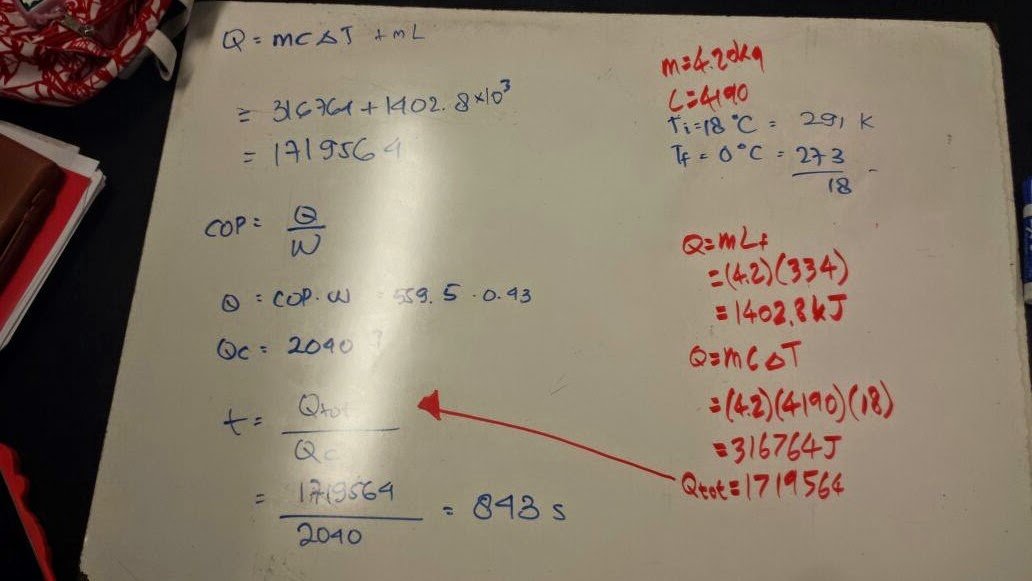 Q = mc△T + mL
= 316764 + 1402.8×10³
= 1719564
COP = Q/W
Q = COP·W = 559.5 · 0.43
Qc = 2040
t = Qtot/Qc
= 1719564/2040 = 843 s
m=4.20kg
C=4190
Ti=18°C = 291 K
Tf = 0°C = 273
18
Q=mLf
=(4.2)(334)
=1402.8kJ
Q=mC△T
=(4.2)(4190)(18)
=316764J
Qtot=1719564